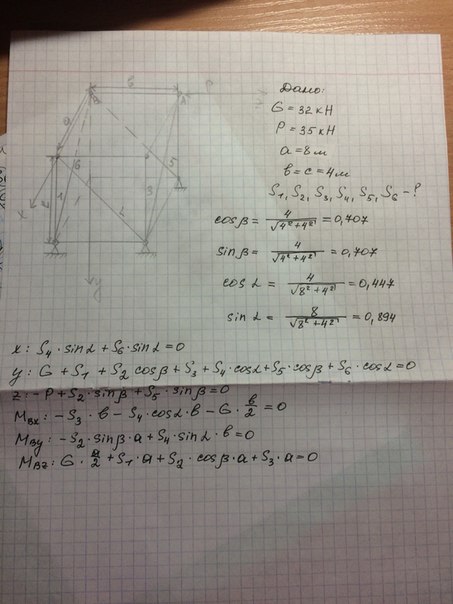 Дано:
G = 32 кН
P = 35 кН
a = 8 м
в = c = 4 м
S1, S2, S3, S4, S5, S6 - ?
cosβ = 4/√(4² + 4²) = 0,707
sinβ = 4/√(4² + 4²) = 0,707
cos L = 4/√(8² + 4²) = 0,447
sin L = 8/√(8² + 4²) = 0,894
в
P
B
A
a
6
5
1
3
L
x
y
x: S4 · sin L + S6 · sin L = 0
y: G + S1 + S2 cosβ + S3 + S4 · cos L + S5 · cosβ + S6 · cos L = 0
z: -P + S2 · sinβ + S5 · sinβ = 0
MBx: -S3 · в - S4 · cos L · в - G · в/2 = 0
MBy: -S2 · sinβ · a + S4 · sin L · в = 0
MBz: G · a/2 + S1 · a + S2 · cosβ · a + S3 · a = 0